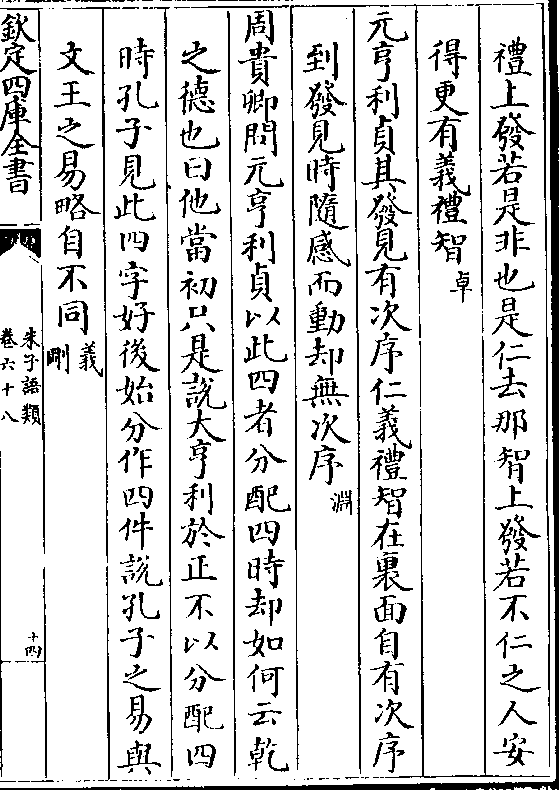 禮上發若是非也是仁去那智上發若不仁之人安
得更有義禮智卓
元亨利貞其發見有次序仁義禮智在裏面自有次序
到發見時隨感而動却無次序淵
周貴卿問元亨利貞以此四者分配四時却如何云乾
之德也曰他當初只是說大亨利於正不以分配四
時孔子見此四字好後始分作四件說孔子之易與
文王之易略自不同義剛
欽定四庫全書
朱子語類
卷六十八
十四